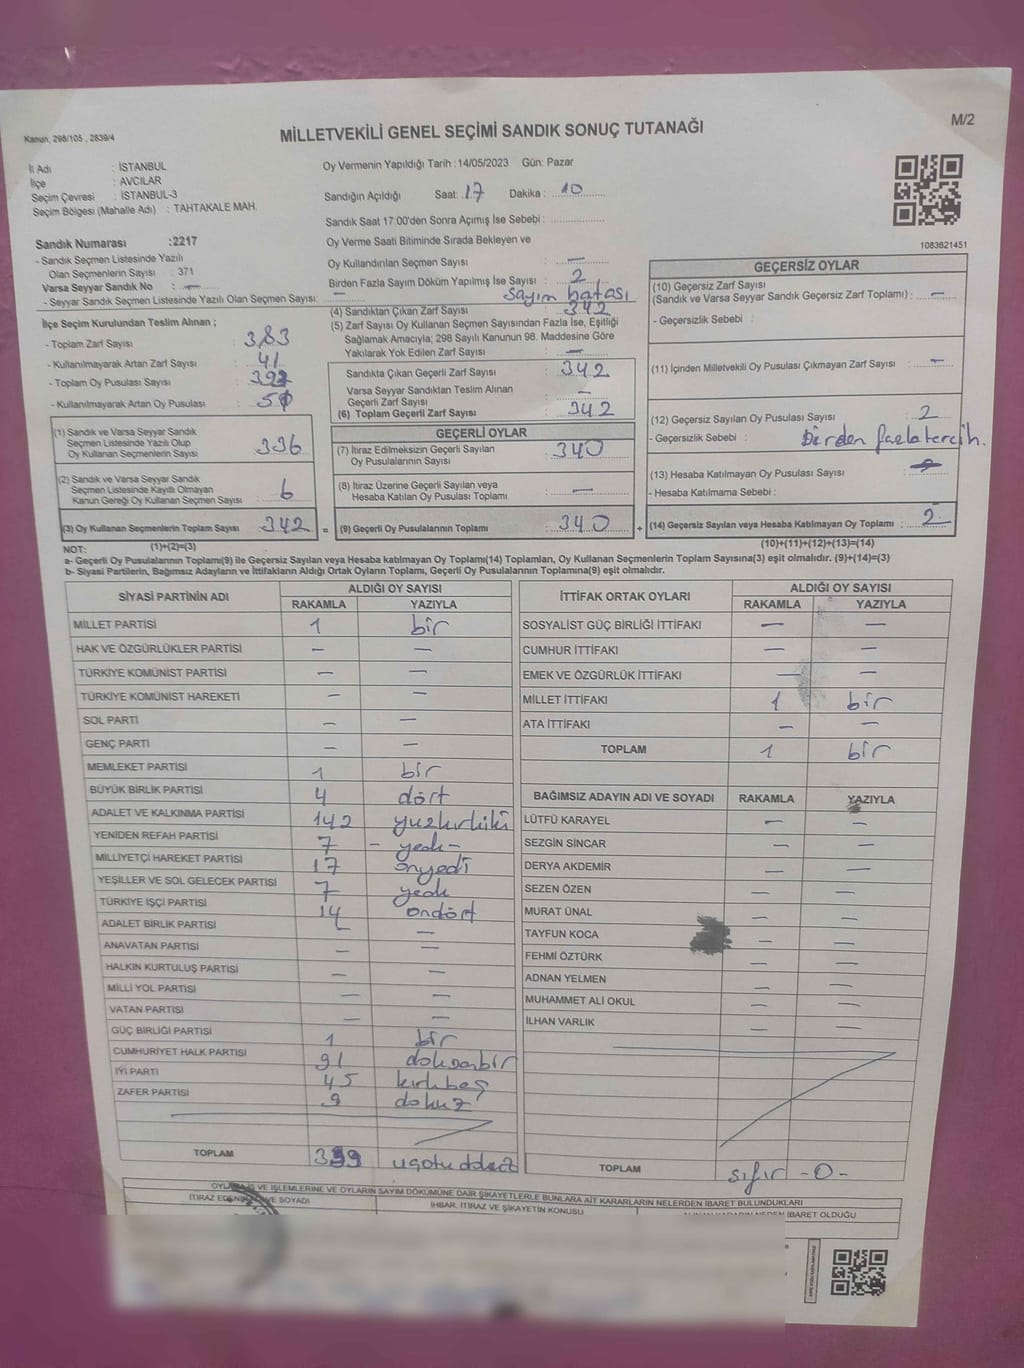 Kanun; 298/105 , 2839/4
MİLLETVEKİLİ GENEL SEÇİMİ SANDIK SONUÇ TUTANAĞI
M/2
İl Adı : İSTANBUL
İlçe : AVCILAR
Seçim Çevresi : İSTANBUL-3
Seçim Bölgesi (Mahalle Adı) : TAHTAKALE MAH.
Oy Vermenin Yapıldığı Tarih :14/05/2023 Gün: Pazar
Sandığın Açıldığı Saat: 17 Dakika : 10
Sandık Saat 17:00'den Sonra Açımış İse Sebebi :
Sandık Numarası :2217
- Sandık Seçmen Listesinde Yazılı
Olan Seçmenlerin Sayısı : 371
Varsa Seyyar Sandık No : —
- Seyyar Sandık Seçmen Listesinde Yazılı Olan Seçmen Sayısı: —
Oy Verme Saati Bitiminde Sırada Bekleyen ve
Oy Kullandırılan Seçmen Sayısı : —
Birden Fazla Sayım Döküm Yapılmış İse Sayısı : 2
sayım hatası
1083621451
İlçe Seçim Kurulundan Teslim Alınan ;
- Toplam Zarf Sayısı : 383
- Kullanılmayarak Artan Zarf Sayısı : 41
- Toplam Oy Pusulası Sayısı :
- Kullanılmayarak Artan Oy Pusulası :
(1) Sandık ve Varsa Seyyar Sandık
Seçmen Listesinde Yazılı Olup
Oy Kullanan Seçmenlerin Sayısı : 336
(2) Sandık ve Varsa Seyyar Sandık
Seçmen Listesinde Kayıtlı Olmayan
Kanun Gereği Oy Kullanan Seçmen Sayısı : 6
(3) Oy Kullanan Seçmenlerin Toplam Sayısı : 342
(1)+(2)=(3)
(4) Sandıktan Çıkan Zarf Sayısı : 342
(5) Zarf Sayısı Oy Kullanan Seçmen Sayısından Fazla İse, Eşitliği
Sağlamak Amacıyla; 298 Sayılı Kanunun 98. Maddesine Göre
Yakılarak Yok Edilen Zarf Sayısı : —
Sandıkta Çıkan Geçerli Zarf Sayısı : 342
Varsa Seyyar Sandıktan Teslim Alınan
Geçerli Zarf Sayısı : —
(6) Toplam Geçerli Zarf Sayısı : 342
GEÇERLİ OYLAR
(7) İtiraz Edilmeksizin Geçerli Sayılan
Oy Pusulalarının Sayısı : 340
(8) İtiraz Üzerine Geçerli Sayılan veya
Hesaba Katılan Oy Pusulası Toplamı : —
= (9) Geçerli Oy Pusulalarının Toplamı : 340 +
GEÇERSİZ OYLAR
(10) Geçersiz Zarf Sayısı
(Sandık ve Varsa Seyyar Sandık Geçersiz Zarf Toplamı) : —
- Geçersizlik Sebebi :
(11) İçinden Milletvekili Oy Pusulası Çıkmayan Zarf Sayısı : —
(12) Geçersiz Sayılan Oy Pusulası Sayısı : 2
- Geçersizlik Sebebi : Birden fazla tercih.
(13) Hesaba Katılmayan Oy Pusulası Sayısı :
- Hesaba Katılmama Sebebi :
(14) Geçersiz Sayılan veya Hesaba Katılmayan Oy Toplamı : 2
(10)+(11)+(12)+(13)=(14)
NOT:
a- Geçerli Oy Pusulalarının Toplamı(9) ile Geçersiz Sayılan veya Hesaba katılmayan Oy Toplamı(14) Toplamları, Oy Kullanan Seçmenlerin Toplam Sayısına(3) eşit olmalıdır. (9)+(14)=(3)
b- Siyasi Partilerin, Bağımsız Adayların ve İttifakların Aldığı Ortak Oyların Toplamı, Geçerli Oy Pusulalarının Toplamına(9) eşit olmalıdır.
SİYASİ PARTİNİN ADI ALDIĞI OY SAYISI
RAKAMLA YAZIYLA
MİLLET PARTİSİ 1 bir
HAK VE ÖZGÜRLÜKLER PARTİSİ — —
TÜRKİYE KOMÜNİST PARTİSİ — —
TÜRKİYE KOMÜNİST HAREKETİ — —
SOL PARTİ — —
GENÇ PARTİ — —
MEMLEKET PARTİSİ 1 bir
BÜYÜK BİRLİK PARTİSİ 4 dört
ADALET VE KALKINMA PARTİSİ 142 yuzkırkiki
YENİDEN REFAH PARTİSİ 7 - yedi -
MİLLİYETÇİ HAREKET PARTİSİ 17 onyedi
YEŞİLLER VE SOL GELECEK PARTİSİ 7 yedi
TÜRKİYE İŞÇİ PARTİSİ 14 ondört
ADALET BİRLİK PARTİSİ — —
ANAVATAN PARTİSİ — —
HALKIN KURTULUŞ PARTİSİ — —
MİLLİ YOL PARTİSİ — —
VATAN PARTİSİ — —
GÜÇ BİRLİĞİ PARTİSİ 1 bir
CUMHURİYET HALK PARTİSİ 91 doksanbir
İYİ PARTİ 45 kırkbeş
ZAFER PARTİSİ 9 dokuz
TOPLAM
İTTİFAK ORTAK OYLARI ALDIĞI OY SAYISI
RAKAMLA YAZIYLA
SOSYALİST GÜÇ BİRLİĞİ İTTİFAKI — —
CUMHUR İTTİFAKI — —
EMEK VE ÖZGÜRLÜK İTTİFAKI — —
MİLLET İTTİFAKI 1 bir
ATA İTTİFAKI — —
TOPLAM 1 bir
BAĞIMSIZ ADAYIN ADI VE SOYADI RAKAMLA YAZIYLA
LÜTFÜ KARAYEL — —
SEZGİN SİNCAR — —
DERYA AKDEMİR — —
SEZEN ÖZEN — —
MURAT ÜNAL — —
TAYFUN KOCA — —
FEHMİ ÖZTÜRK — —
ADNAN YELMEN — —
MUHAMMET ALİ OKUL — —
İLHAN VARLIK — —
TOPLAM sıfır -0-
OYLAMA İŞ VE İŞLEMLERİNE VE OYLARIN SAYIM DÖKÜMÜNE DAİR ŞİKAYETLERLE BUNLARA AİT KARARLARIN NELERDEN İBARET BULUNDUKLARI
İTİRAZ EDENİN ADI VE SOYADI İHBAR, İTİRAZ VE ŞİKAYETİN KONUSU ALINAN KARARIN NEDEN İBARET OLDUĞU